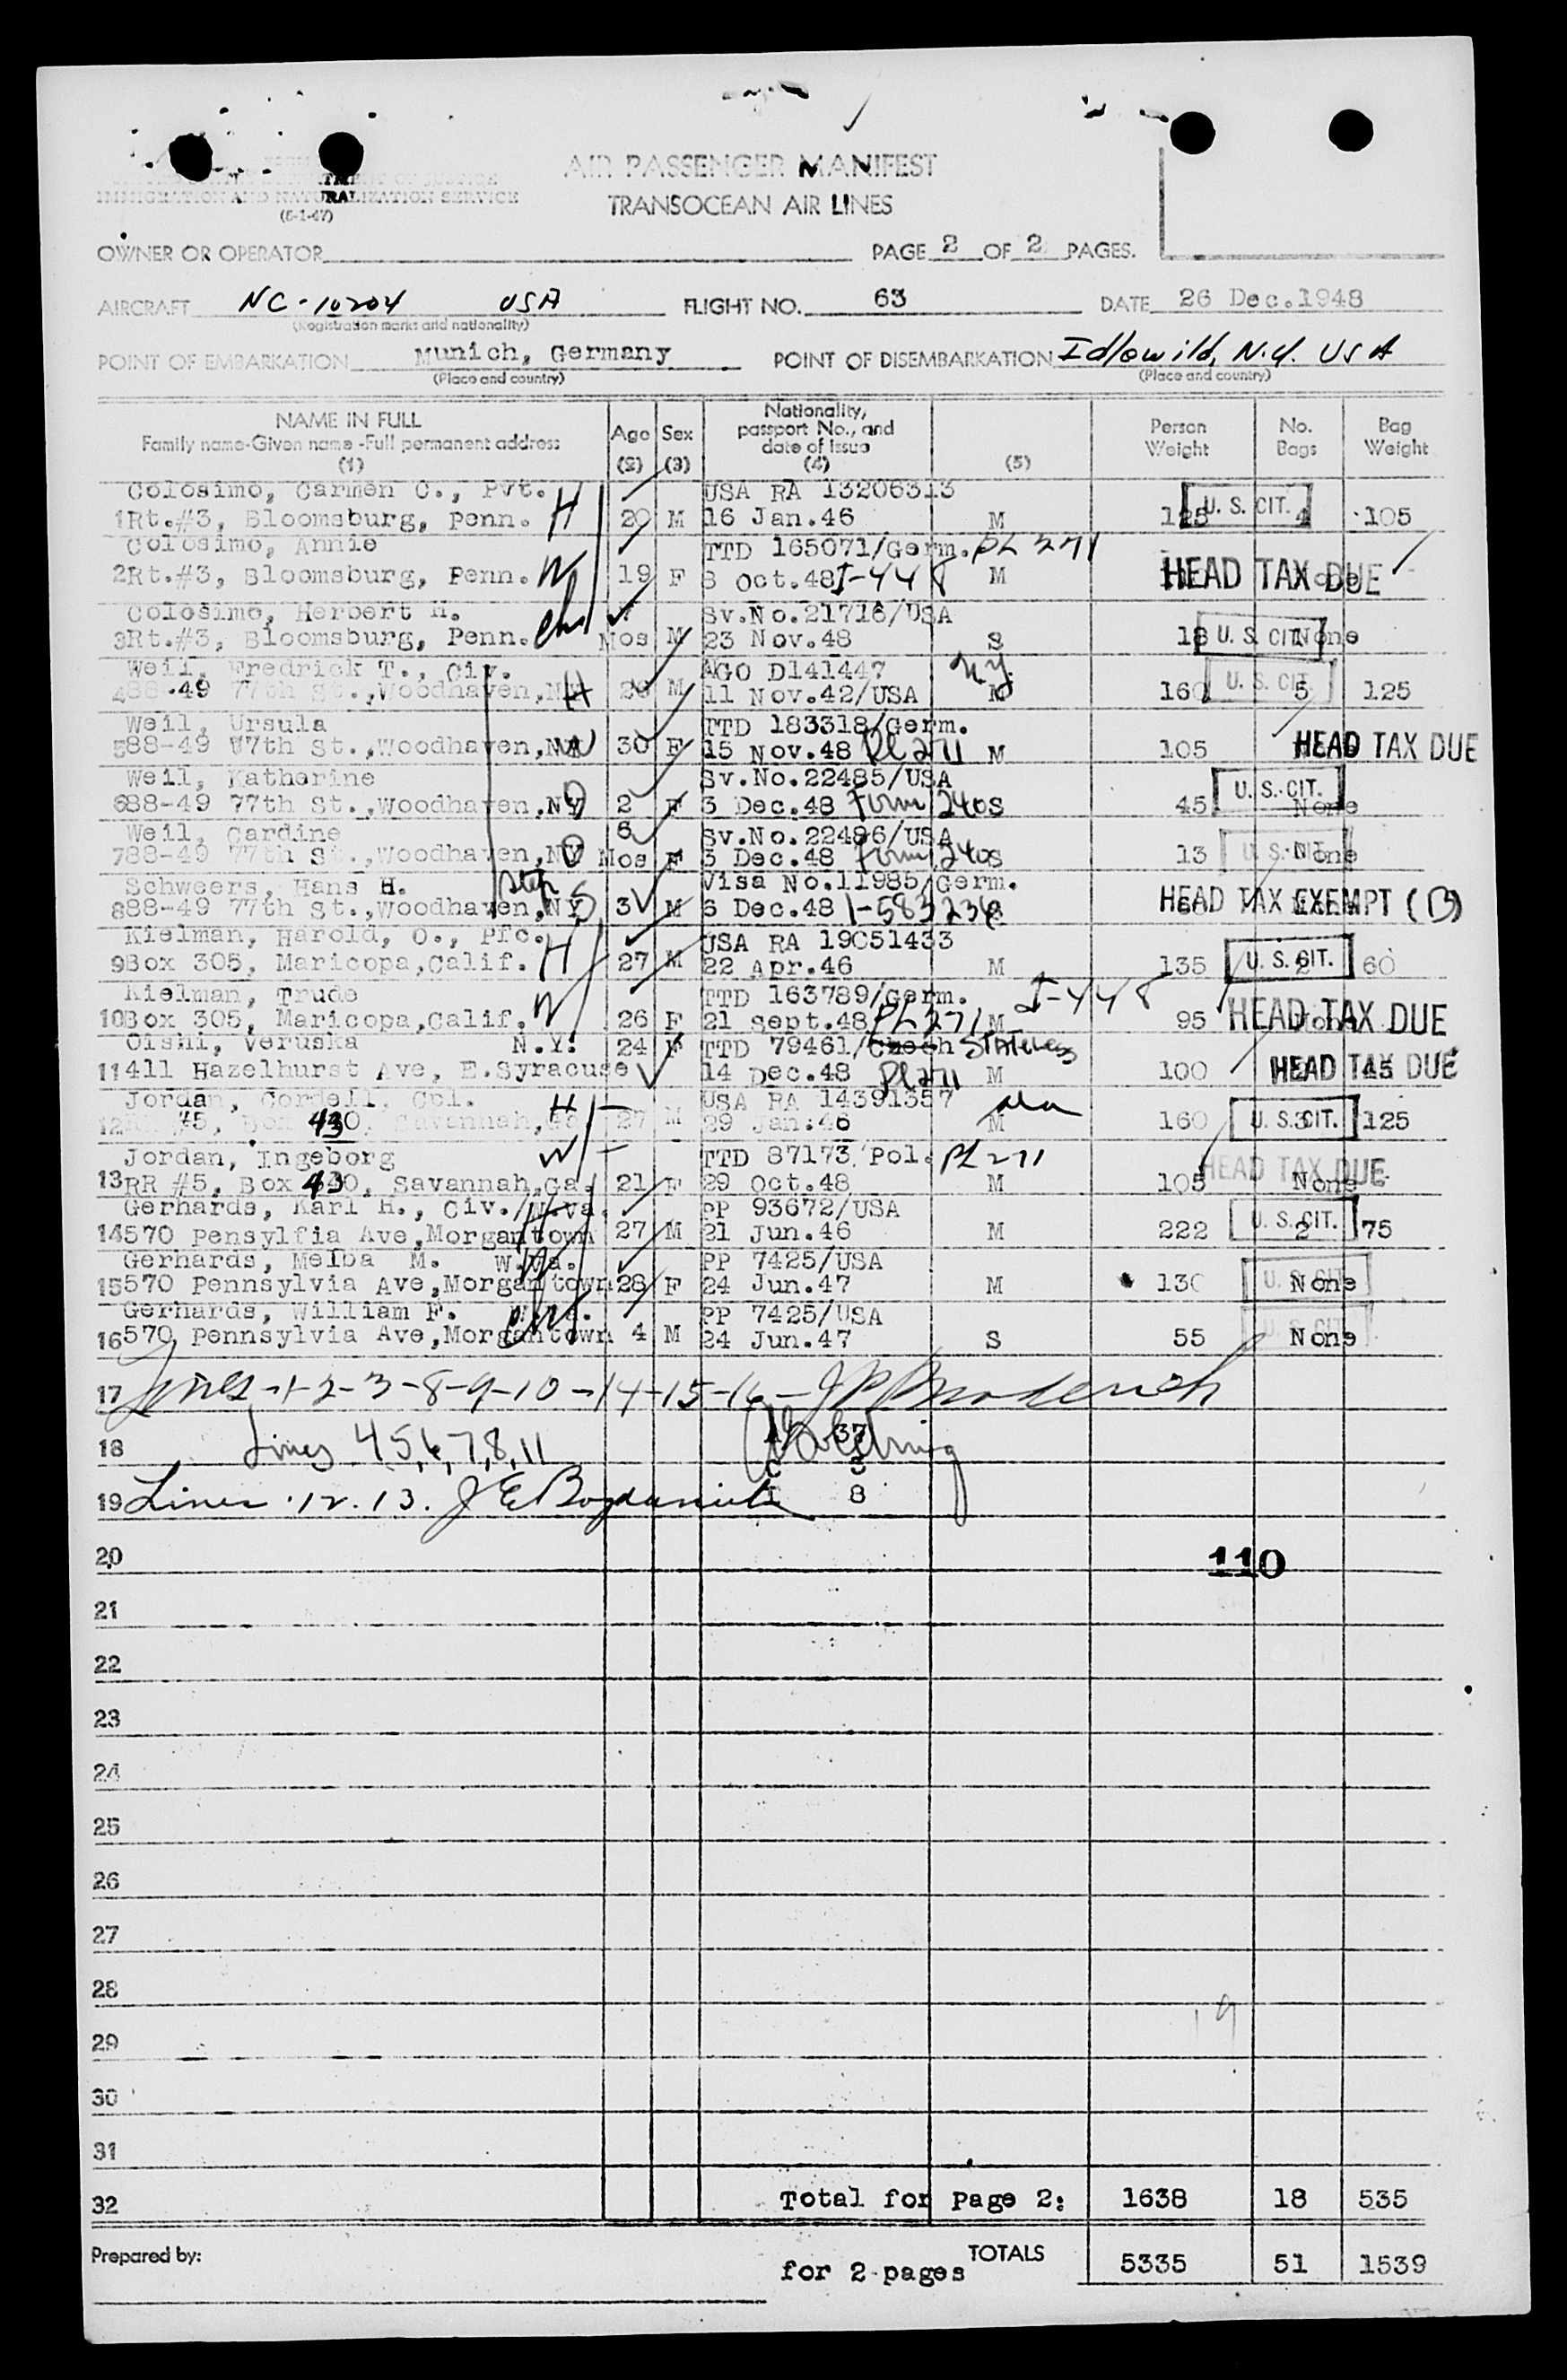 AIR PASSENGER MANIFEST
IMMIGRATION AND NATURALIZATION SERVICE
(6-1-47)
TRANSOCEAN AIR LINES
OWNER OR OPERATOR
PAGE 2 OF 2 PAGES.
AIRCRAFT NC-10204 USA FLIGHT NO. 63 DATE 26 Dec.1948
(Registration marks and nationality)
POINT OF EMBARKATION Munich, Germany POINT OF DISEMBARKATION Idlewild, N.Y. USA
(Place and country) (Place and country)
NAME IN FULL
Family name-Given name -Full permanent address
(1)
Age
(2)
Sex
(3)
Nationality,
passport No., and
date of issue
(4)
(5)
Person
Weight
No.
Bags
Bag
Weight
Colosimo, Carmen C., Pvt. USA RA 13206313
1 Rt.#3, Bloomsburg, Penn. H 20 M 16 Jan.46 M 125 U. S. CIT. 4 105
Colosimo, Annie TTD 165071/Germ. PL 271
2 Rt.#3, Bloomsburg, Penn. W 19 F 8 Oct.48 I-448 M HEAD TAX DUE
Colosimo, Herbert H. Sv.No.21716/USA
3 Rt.#3, Bloomsburg, Penn. Mos M 23 Nov.48 S 18 U. S. CIT. None
Weil, Fredrick T., Civ. AGO D141447 NY
4 88-49 77th St.,Woodhaven,NY H M 11 Nov.42/USA M 160 U. S. CIT. 5 125
Weil, Ursula TTD 183318/Germ.
5 88-49 77th St.,Woodhaven,NY W 30 F 15 Nov.48 PL 271 M 105 HEAD TAX DUE
Weil, Katherine Sv.No.22485/USA
6 88-49 77th St.,Woodhaven,NY D 2 F 3 Dec.48 Form 240 S 45 U. S. CIT. None
Weil, Cardine 6 Sv.No.22486/USA
7 88-49 77th St.,Woodhaven,NY D Mos F 3 Dec.48 Form 240 S 13 U. S. CIT. None
Schweers, Hans H. Step Visa No.11985/Germ.
8 88-49 77th St.,Woodhaven,NY S 3 M 6 Dec.48 HEAD TAX EXEMPT (B)
Kielman, Harold, O., Pfc. USA RA 19051433
9 Box 305, Maricopa,Calif. H 27 M 22 Apr.46 M 135 U. S. CIT. 2 60
Kielman, Trude TTD 163789/Germ. I-448
10 Box 305, Maricopa,Calif. W 26 F 21 Sept.48 PL 271 M 95 HEAD TAX DUE
Oishi, Veruska N.Y. 24 F TTD 79461/Czech Stateless
11 411 Hazelhurst Ave, E.Syracuse 14 Dec.48 PL 271 M 100 HEAD TAX DUE 45
Jordan, Cordell, Cpl. H USA RA 14391357
12 #5, Box 430, Savannah, 27 M 29 Jan.46 M 160 U. S. CIT. 3 125
Jordan, Ingeborg W TTD 87173/Pol. PL 271
13 RR #5, Box 430, Savannah,Ga. 21 F 29 Oct.48 M 105 HEAD TAX DUE None
Gerhards, Karl H., Civ. W.Va. PP 93672/USA
14 570 Pensylfia Ave,Morgantown 27 M 21 Jun.46 M 222 U. S. CIT. 2 75
Gerhards, Melba M. W.Va. PP 7425/USA
15 570 Pennsylvia Ave,Morgantown 28 F 24 Jun.47 M 130 U. S. CIT. None
Gerhards, William F. PP 7425/USA
16 570 Pennsylvia Ave,Morgantown 4 M 24 Jun.47 S 55 U. S. CIT. None
17 Lines -1-2-3-8-9-10-14-15-16-
18 Lines 4,5,6,7,8,11 37
C 3
19 Lines .12.13. I 8
20 110
21
22
23
24
25
26
27
28
29
30
31
32 Total for Page 2: 1638 18 535
Prepared by: for 2 pages TOTALS 5335 51 1539